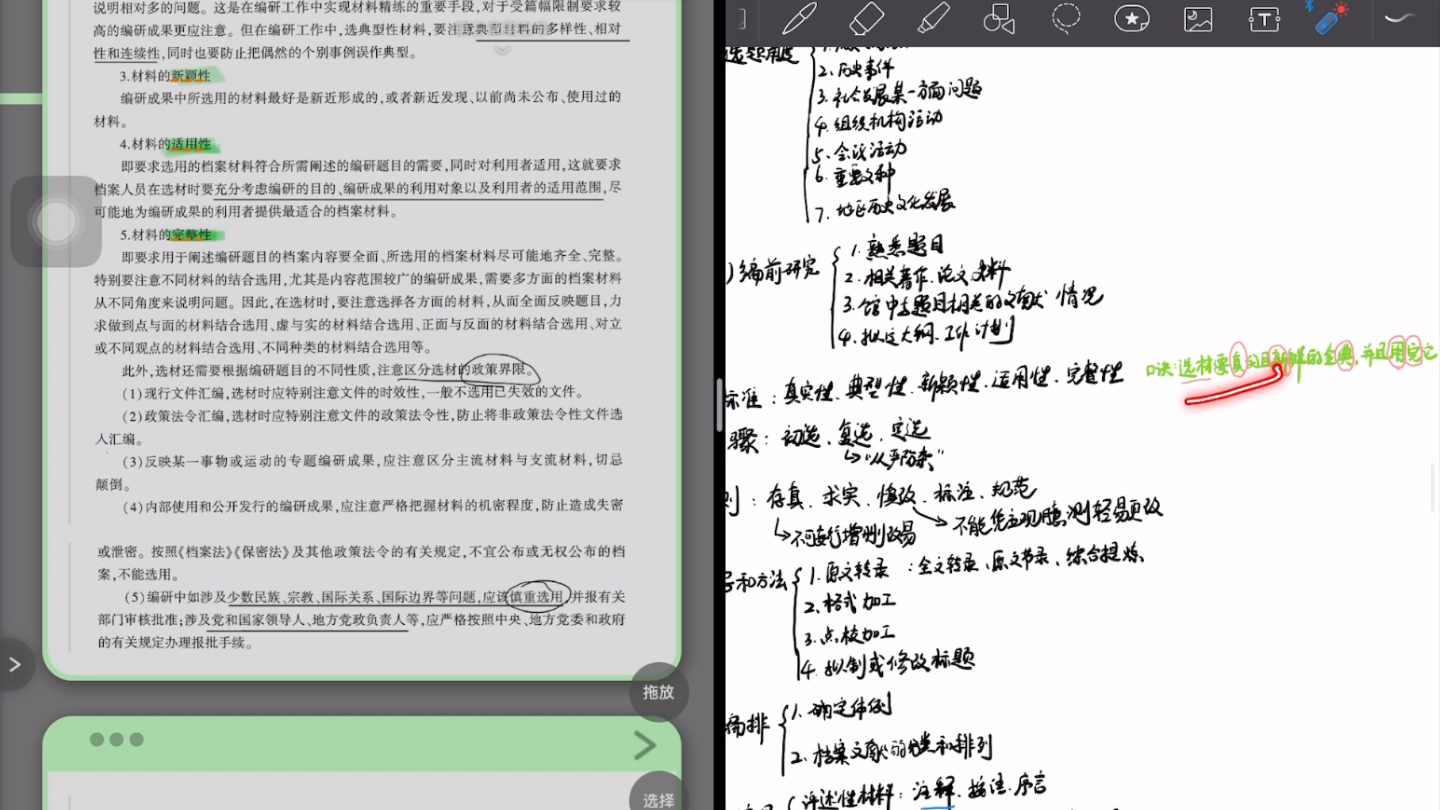 说明相对多的问题。这是在编研工作中实现材料精练的重要手段,对于受篇幅限制要求较
高的编研成果更应注意。但在编研工作中,选典型性材料,要注意典型材料的多样性、相对
性和连续性,同时也要防止把偶然的个别事例误作典型。
3.材料的新颖性
编研成果中所选用的材料最好是新近形成的,或者新近发现、以前尚未公布、使用过的
材料。
4.材料的适用性
即要求选用的档案材料符合所需阐述的编研题目的需要,同时对利用者适用,这就要求
档案人员在选材时要充分考虑编研的目的、编研成果的利用对象以及利用者的适用范围,尽
可能地为编研成果的利用者提供最适合的档案材料。
5.材料的完整性
即要求用于阐述编研题目的档案内容要全面、所选用的档案材料尽可能地齐全、完整。
特别要注意不同材料的结合选用,尤其是内容范围较广的编研成果,需要多方面的档案材料
从不同角度来说明问题。因此,在选材时,要注意选择各方面的材料,从而全面反映题目,力
求做到点与面的材料结合选用、虚与实的材料结合选用、正面与反面的材料结合选用、对立
或不同观点的材料结合选用、不同种类的材料结合选用等。
此外,选材还需要根据编研题目的不同性质,注意区分选材的政策界限。
(1)现行文件汇编,选材时应特别注意文件的时效性,一般不选用已失效的文件。
(2)政策法令汇编,选材时应特别注意文件的政策法令性,防止将非政策法令性文件选
入汇编。
(3)反映某一事物或运动的专题编研成果,应注意区分主流材料与支流材料,切忌
颠倒。
(4)内部使用和公开发行的编研成果,应注意严格把握材料的机密程度,防止造成失密
或泄密。按照《档案法》《保密法》及其他政策法令的有关规定,不宜公布或无权公布的档
案,不能选用。
(5)编研中如涉及少数民族、宗教、国际关系、国际边界等问题,应该慎重选用,并报有关
部门审核批准;涉及党和国家领导人、地方党政负责人等,应严格按照中央、地方党委和政府
的有关规定办理报批手续。
拖放
选择
选题角度
2.历史事件
3.社会发展某一方面问题
4.组织机构活动
5.会议活动
6.重要文种
7.地区历史文化发展
)编前研究
1.熟悉题目
2.相关著作、论文、材料
3.馆中与题目相关的文献情况
4.拟定大纲、工作计划
标准:真实性、典型性、新颖性、适用性、完整性
口诀:选材要真的且新鲜的全典,并且用完它
骤:初选、复选、定选
"从严防杂"
则:存真、求实、慎改、标注、规范
不可妄行增删改易
不能凭主观臆测轻易更改
和方法
1.原文转录:全文转录、原文节录、综合提炼
2.格式加工
3.点校加工
4.拟制或修改标题
编排
1.确定体例
2.档案文献的分类和排列
评述性材料:注释、按语、序言